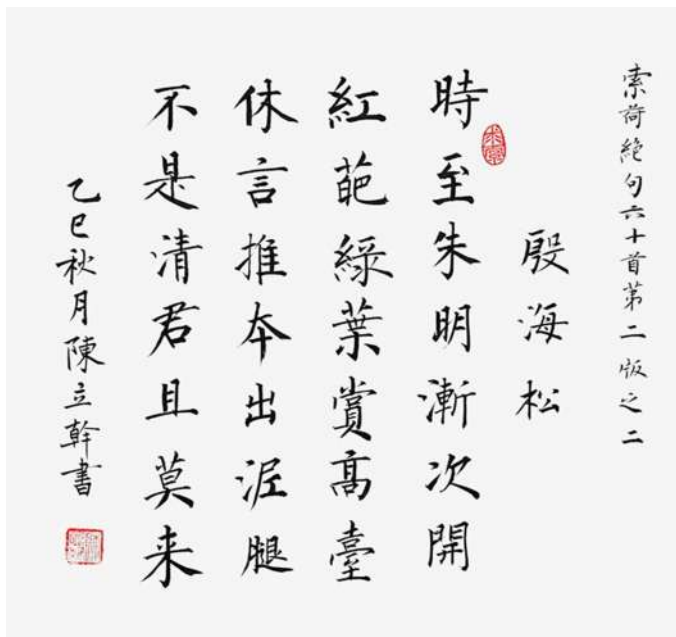 索荷絶句六十首第二版之二
殷海松
時至朱明漸次開
紅葩綠葉賞高臺
休言推本出泥腿
不是清君且莫来
乙巳秋月陳立幹書